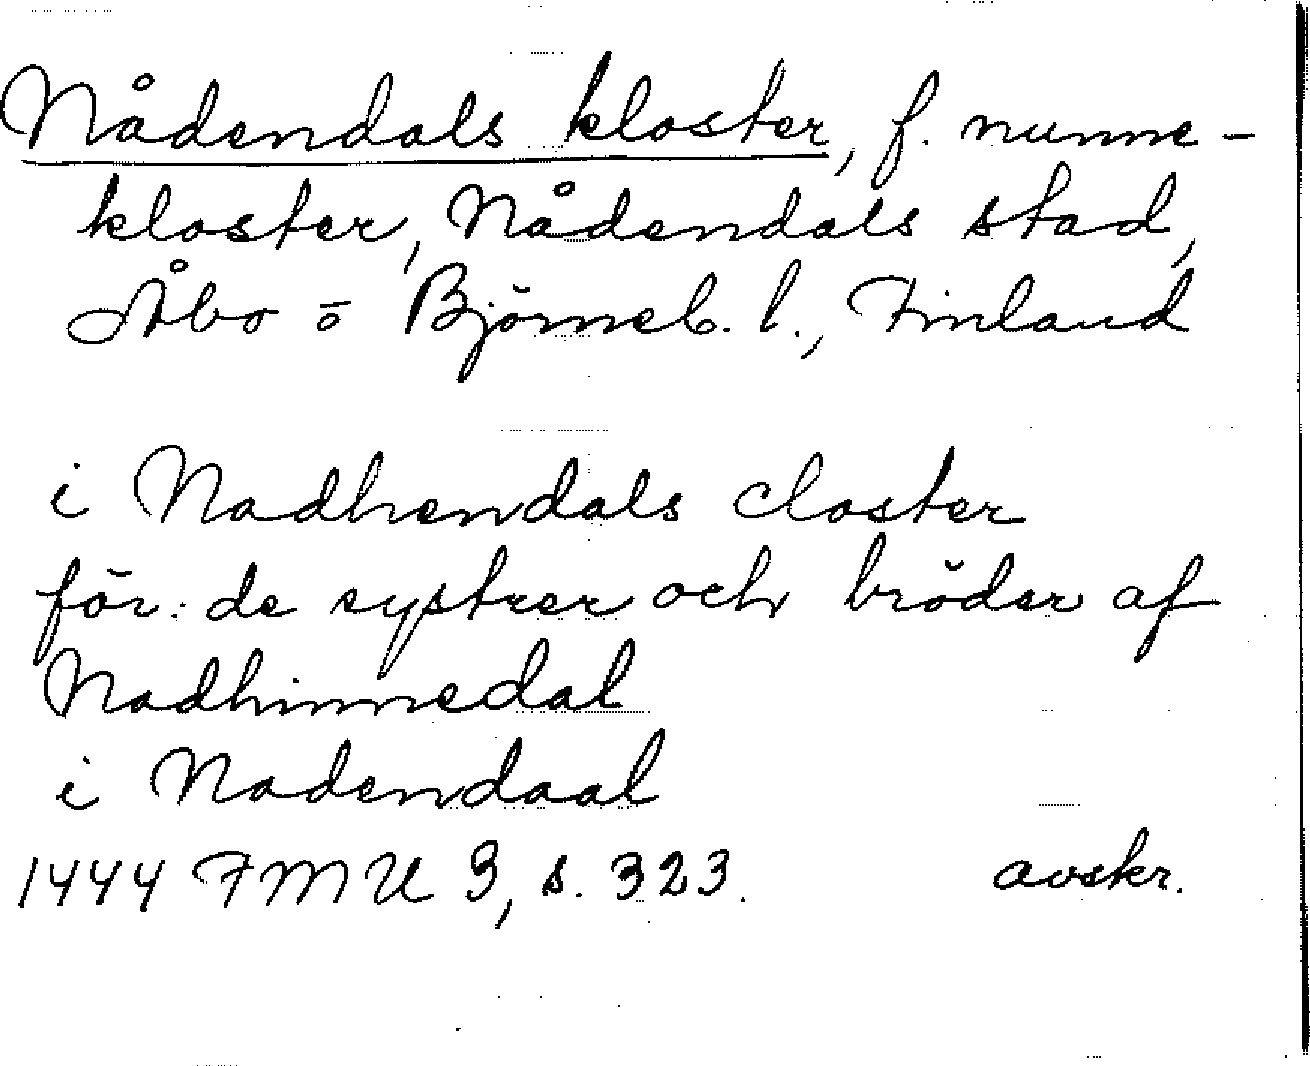 Nådendals kloster, f. nunne-
kloster, Nådendals stad,
Åbo o Björneb. l., Finland
i Nadhendals closter
för: de systrer och bröder af
Nadhinnedal
i Nadendaal
1444 FMU 3, s. 323. avskr.